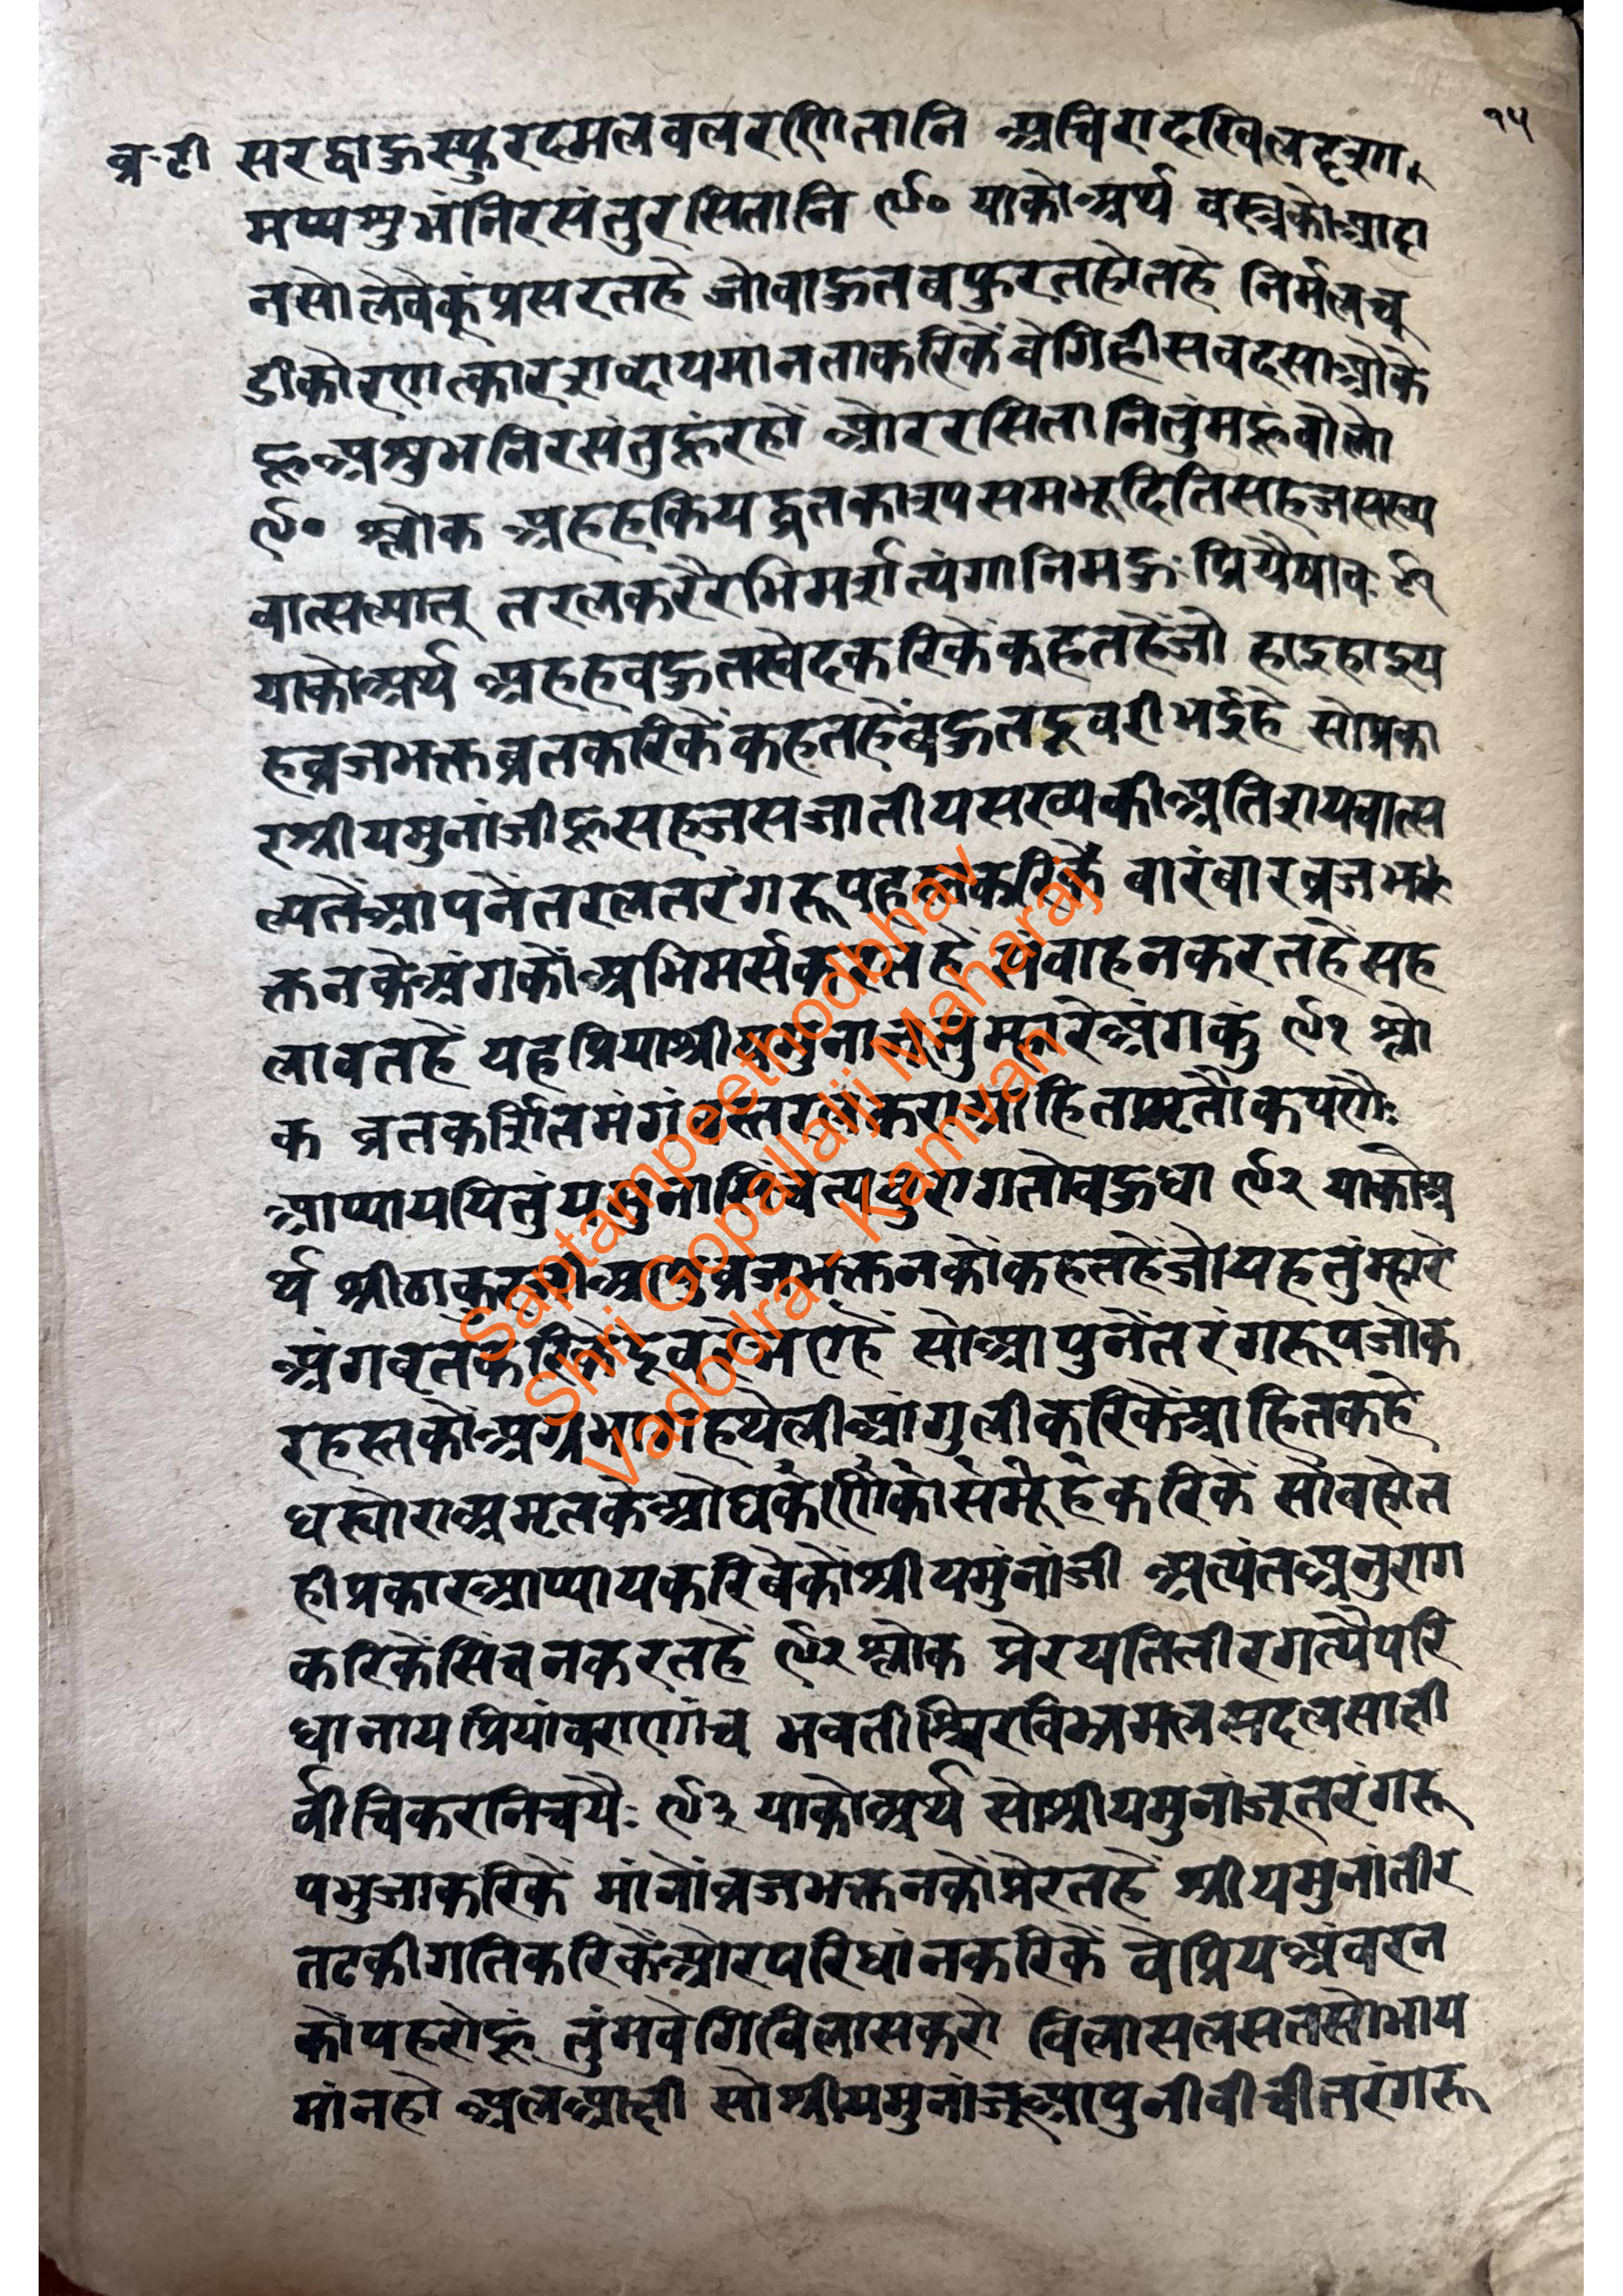 १५
व्र-टी सरद्वाहुस्फुरदमलवलरणितानि अचिरादखिलदृशा
मप्यशुभंनिरसंतुरसितानि ९० याकोअर्थ वस्त्रकोआदा
नसोलेवेकूंप्रसरतहे जोवाहुतवफुरतहोतहे निर्मलचू
डीकोरणत्कारशब्दायमानताकरिकेंवेगिहीसवदसाओके
हूअशुभनिरसंतुहूंरहों ओररसितानितुंमहूंवोलो
९० श्लोक अहहकियद्व्रतकारपसमभूदितिसहजसख्य
वात्सल्यात् तरलकरैरभिमर्शत्यंगानिमहुःप्रियैषावः ९१
याकोअर्थ अहहवहुतखेदकरिकेंकहतहेंजो हाइहाइय
हव्रजभक्तव्रतकरिकेंकहतहेंवहुतदूवरीभईहे सोप्रका
रश्रीयमुनांजीहूसहजसजातीयसख्यकीअतिशयवात्स
ल्यतेंआपनेंतरलतरंगरूपहस्तकरिकें वारंवारव्रजभ
क्तनकेअंगकोंअभिमर्सकरतहें संवाहनकरतहेंसह
लावतहें यहप्रियाश्रीयमुनाजूतुमारेअंगकुं ९१ श्लो
क व्रतकर्शितमंगंवस्तरलकराग्राहितामृतौकघणैः
आप्याययितुंयमुनासिंचत्यनुरागतोवहुधा ९२ याकोअ
र्थ श्रीठाकुरजीआपुव्रजभक्तनकोंकहतहेंजोयहतुंम्हारे
अंगवृतकरिकेंदूवरेभएहें सोआपुनेंतरंगरूपजोक
रहस्तकोअग्रभागहथेलीआंगुलीकरिकेंआहितकहे
धस्योराअमृतकेओघकणिकोसमूहकरिकें सोवहोत
हीप्रकारआप्यायकरिवेकोंश्रीयमुंनांजी अत्यंतअनुराग
करिकेंसिंचनकरतहें ९२श्लोक प्रेरयतितीरगत्यैपरि
धानायप्रियांवराणांच भवतीश्चिरविभ्रमलसदलसाली
र्वीचिकरनिचयैः ९३ याकोअर्थ सोश्रीयमुनांजूतरंगरू
पभुजाकरिकें मांनोंव्रजभक्तनकोंप्रेरतहें श्रीयमुनांतीर
तटकीगतिकरिकेंओरपरिधांनकरिकें वेप्रियअंवरन
कोंपहरोहूं तुंमवेगिविलासकरो विलासलसतसोभाय
मांनहो अलआली सोश्रीयमुनांजूआपुनीवीचीतरंगरू
Saptampeethodbhav
Shri Gopallalji Maharaj
Vadodra - Kamvan